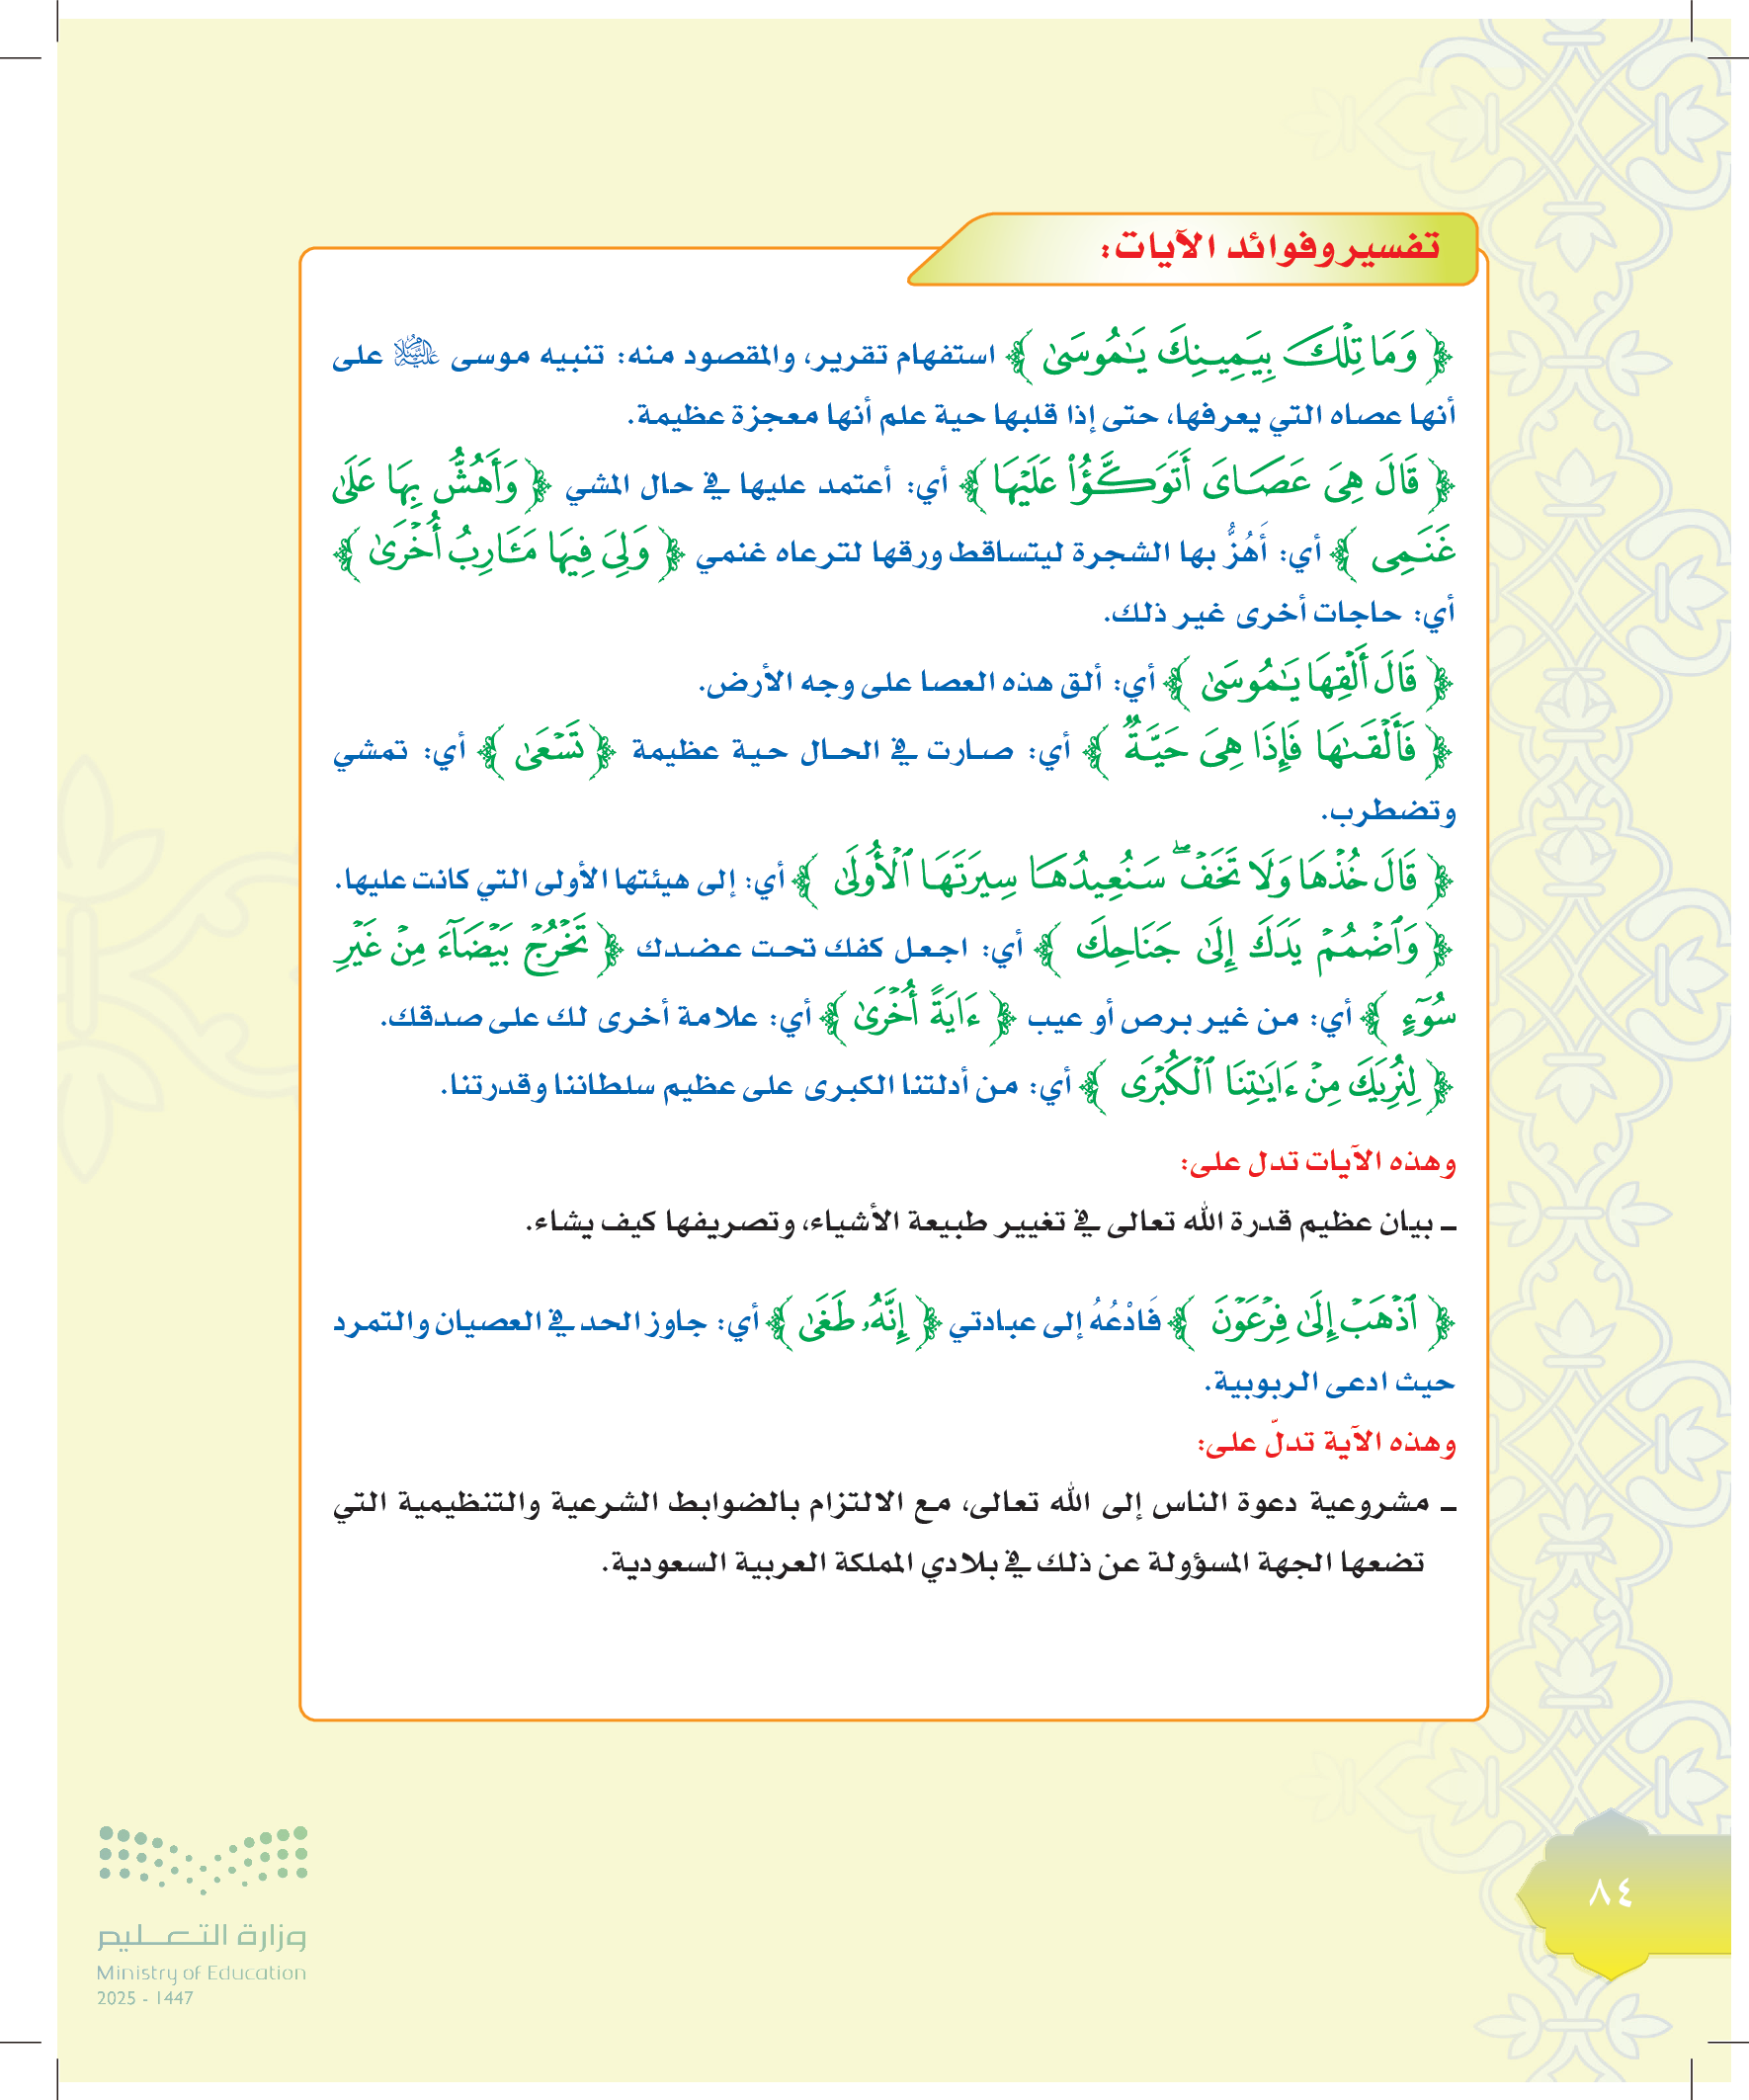 تفسير وفوائد الآيات:
﴿ وَمَا تِلْكَ بِيَمِينِكَ يَـٰمُوسَىٰ ﴾ استفهام تقرير، والمقصود منه: تنبيه موسى عليه السلام على
أنها عصاه التي يعرفها، حتى إذا قلبها حية علم أنها معجزة عظيمة.
﴿ قَالَ هِىَ عَصَاىَ أَتَوَكَّؤُا۟ عَلَيْهَا ﴾ أي: أعتمد عليها في حال المشي ﴿ وَأَهُشُّ بِهَا عَلَىٰ
غَنَمِى ﴾ أي: أَهُزُّ بها الشجرة ليتساقط ورقها لترعاه غنمي ﴿ وَلِىَ فِيهَا مَـَٔارِبُ أُخْرَىٰ ﴾
أي: حاجات أخرى غير ذلك.
﴿ قَالَ أَلْقِهَا يَـٰمُوسَىٰ ﴾ أي: ألق هذه العصا على وجه الأرض.
﴿ فَأَلْقَىٰهَا فَإِذَا هِىَ حَيَّةٌ ﴾ أي: صارت في الحال حية عظيمة ﴿ تَسْعَىٰ ﴾ أي: تمشي
وتضطرب.
﴿ قَالَ خُذْهَا وَلَا تَخَفْ ۖ سَنُعِيدُهَا سِيرَتَهَا ٱلْأُولَىٰ ﴾ أي: إلى هيئتها الأولى التي كانت عليها.
﴿ وَٱضْمُمْ يَدَكَ إِلَىٰ جَنَاحِكَ ﴾ أي: اجعل كفك تحت عضدك ﴿ تَخْرُجْ بَيْضَآءَ مِنْ غَيْرِ
سُوٓءٍ ﴾ أي: من غير برص أو عيب ﴿ ءَايَةً أُخْرَىٰ ﴾ أي: علامة أخرى لك على صدقك.
﴿ لِنُرِيَكَ مِنْ ءَايَـٰتِنَا ٱلْكُبْرَى ﴾ أي: من أدلتنا الكبرى على عظيم سلطاننا وقدرتنا.
وهذه الآيات تدل على:
ـ بيان عظيم قدرة الله تعالى في تغيير طبيعة الأشياء، وتصريفها كيف يشاء.
﴿ ٱذْهَبْ إِلَىٰ فِرْعَوْنَ ﴾ فَادْعُهُ إلى عبادتي ﴿ إِنَّهُۥ طَغَىٰ ﴾ أي: جاوز الحد في العصيان والتمرد
حيث ادعى الربوبية.
وهذه الآية تدلّ على:
ـ مشروعية دعوة الناس إلى الله تعالى، مع الالتزام بالضوابط الشرعية والتنظيمية التي
تضعها الجهة المسؤولة عن ذلك في بلادي المملكة العربية السعودية.
٨٤
وزارة التعليم
Ministry of Education
2025 - 1447